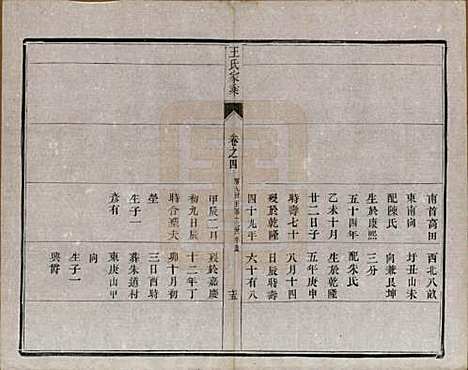 王氏家乘
卷之四
十五
南首高田
東南崗
配陳氏
生於康熙
五十四年
乙未十月
廿二日子
時壽七十
歿於乾隆
四十九年
甲辰二月
初九日辰
時合葬夫
塋
生子一
彥有
西北八畝
圩丑山未
向兼艮坤
三分
配朱氏
生於乾隆
五年庚申
八月十四
日辰時壽
六十有八
歿於嘉慶
十二年丁
卯十月初
三日酉時
葬朱道村
東庚山甲
向
生子一